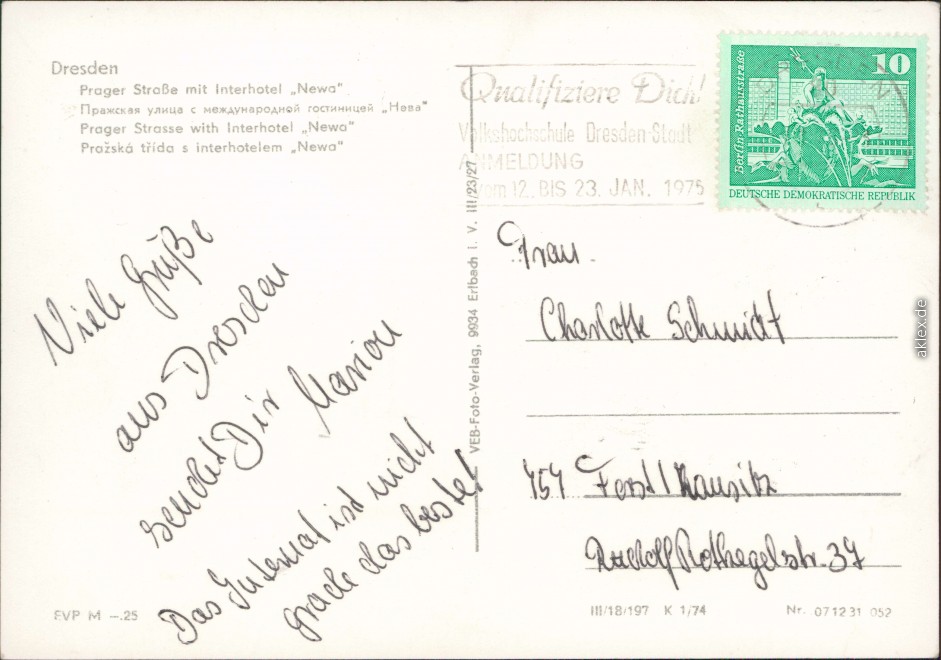 Dresden
Prager Straße mit Interhotel „Newa"
Пражская улица с международной гостиницей „Нева"
Prager Strasse with Interhotel „Newa"
Pražská třída s interhotelem „Newa"
Viele Grüße
aus Dresden
sendet Dir Marion
Das Internat ist nicht
grade das beste!
EVP M -.25
VEB-Foto-Verlag, 9934 Erlbach i. V. III/23/27
Qualifiziere Dich!
Volkshochschule Dresden-Stadt
ANMELDUNG
vom 12. BIS 23. JAN. 1975
Berlin-Rathausstraße
10
DEUTSCHE DEMOKRATISCHE REPUBLIK
Frau
Charlotte Schmidt
757 Forst/Lausitz
Rudolf Rothegelstr. 37
III/18/197 K 1/74 Nr. 071231 052
aklex.de